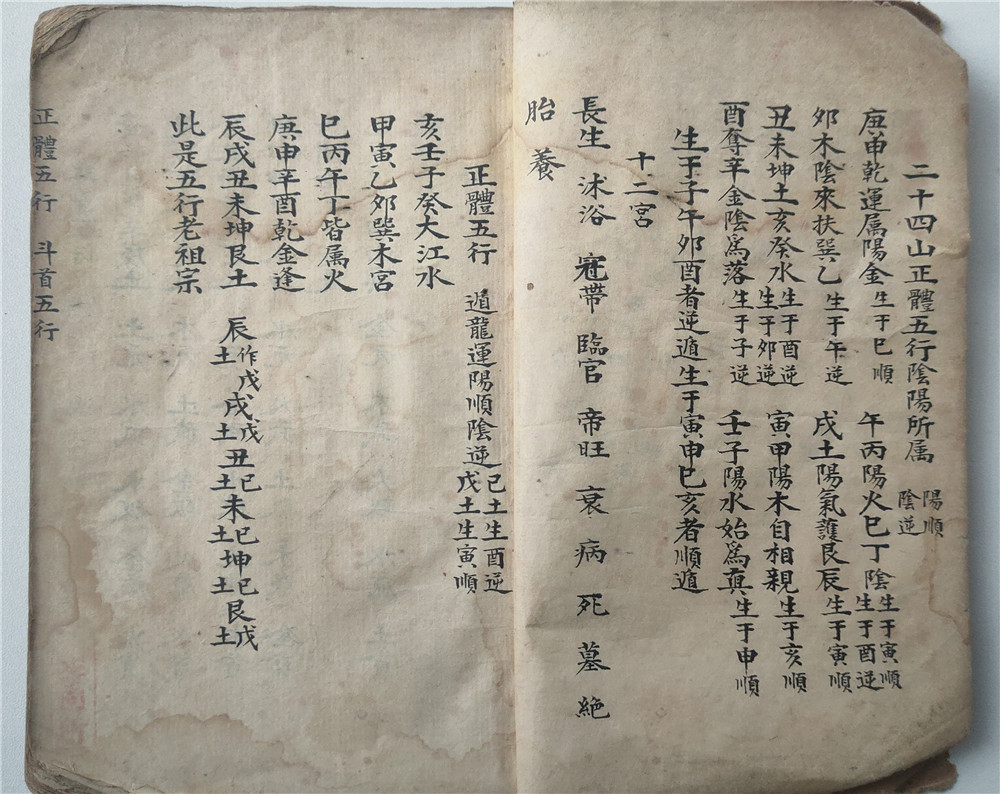 二十四山正體五行陰陽所属 陽順 陰逆
庚申乾運属陽金 生于巳順 午丙陽火巳丁陰 生于寅順 生于酉逆
卯木陰來扶巽乙 生于午逆 戌土陽氣護艮辰 生于寅順
丑未坤土亥癸水 生于酉逆 生于卯逆 寅甲陽木自相親 生于亥順
酉奪辛金陰爲落 生于子逆 壬子陽水始爲真 生于申順
生于子午卯酉者逆遁生于寅申巳亥者順遁
十二宮
長生 沭浴 冠帶 臨官 帝旺 衰 病 死 墓 絶
胎 養
正體五行 遁龍運陽順陰逆 己土生酉逆 戊土生寅順
亥壬子癸大江水
甲寅乙卯巽木宮
巳丙午丁皆属火
庚申辛酉乾金逢
辰戌丑未坤艮土 辰土作戊戌土戊丑土己未土己坤土己艮土戊
此是五行老祖宗
正體五行 斗首五行